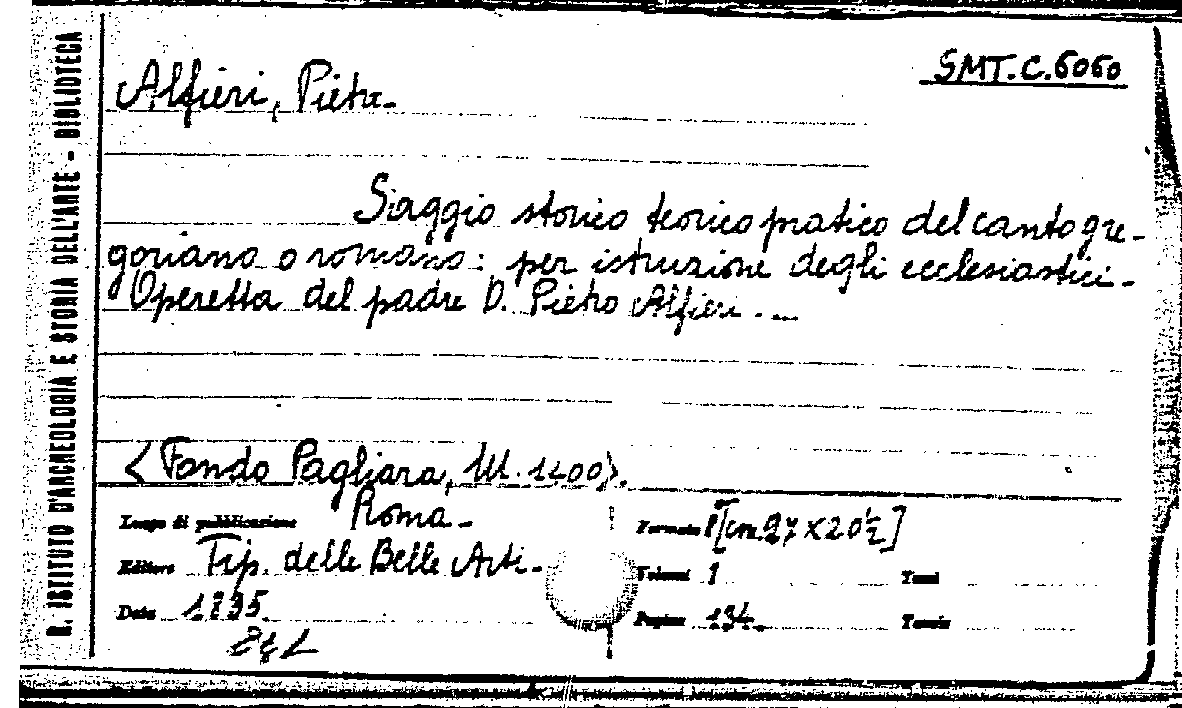 R. ISTITUTO D'ARCHEOLOGIA E STORIA DELL'ARTE - BIBLIOTECA
SMT.C.6060
Alfieri, Pietro-
Saggio storico teorico pratico del canto gre-
goriano o romano: per istruzione degli ecclesiastici.-
Operetta del padre D. Pietro Alfieri.-
<Fondo Pagliara, M. 1200>.
Luogo di pubblicazione Roma-
Formato 8[cm.27x20½]
Editore Tip. delle Belle Arti-
Volumi 1
Tomi
Data 1835
Pagine 134.
Tavole